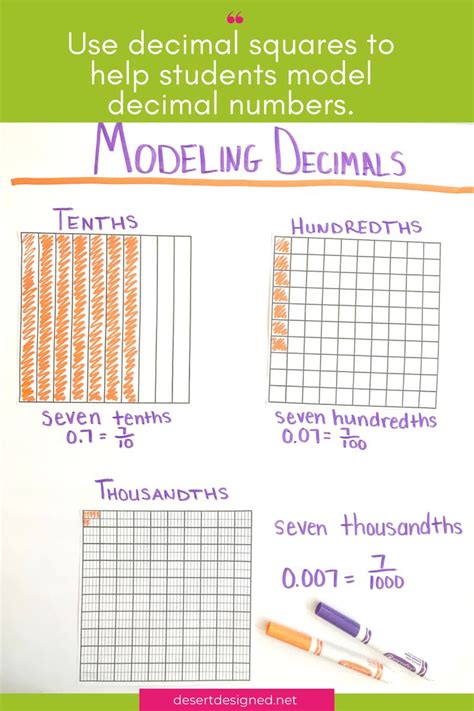 Use decimal squares to
help students model
decimal numbers.
MODELING DECIMALS
TENTHS
seven tenths
0.7 = 7/10
HUNDREDTHS
seven hundredths
0.07 = 7/100
THOUSANDTHS
seven thousandths
0.007 = 7/1000
desertdesigned.net